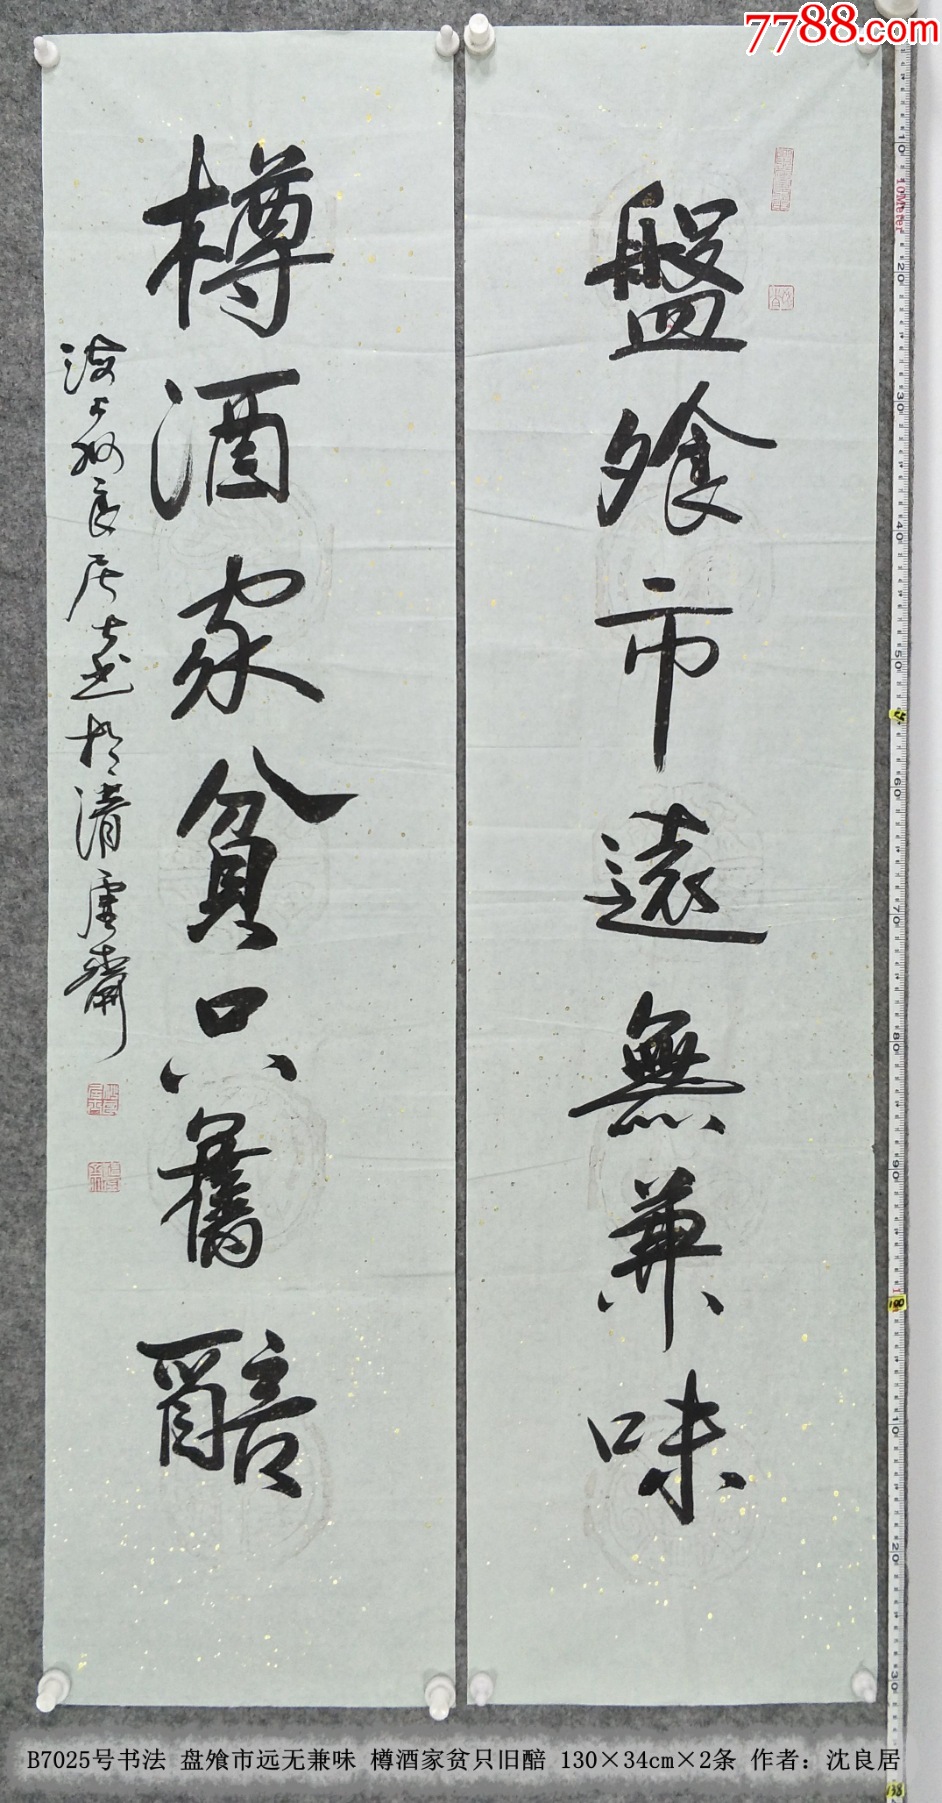 7788.com
盤飧市遠無兼味
樽酒家貧只舊醅
海上沈良居士书於清虚齋
10Meter
B7025号书法 盘飧市远无兼味 樽酒家贫只旧醅 130×34cm×2条 作者：沈良居